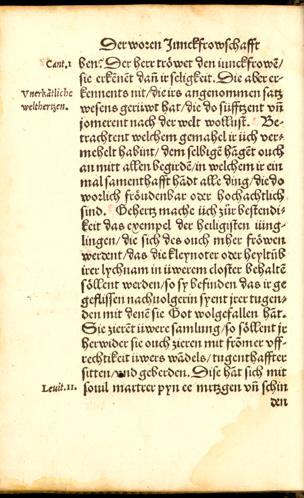 Der woren Junckfrowschafft
Cant.1 ben? Der herr tröwet den iunckfrowē/
sie erkēnēt dañ ir seligkeit. Die aber er-
Vnerkātliche kennents nit/die irs angenommen satz
welthertzen. wesens gerüwt hat/die do süfftzent vñ
jomerent nach der welt wollust. Be-
trachtent welchem gemahel ir üch ver-
mehelt habint/dem selbigē hāgēt ouch
an mitt allen begirdē/in welchem ir ein
mal samenthafft hādt alle ding/die do
worlich fröudenbar oder hochachtlich
sind. Gehertz mache üch zür bestendi-
keit das exempel der heiligisten iüng-
lingen/die sich des ouch mher fröwen
werdent/das die kleynoter oder heyltüb
irer lychnam in üwerem closter behaltē
söllent werden/so sy befinden das ir ge
geflissen nachuolgerin syent jrer tugen-
den mit denē sie Got wolgefallen hāt.
Sie zierēt üwere samlung/so söllent jr
herwider sie ouch zieren mit frömer vff-
rechtikeit üwers wādels/tugenthaffter
sitten/vnd geberden. Dise hāt sich mit
Leuit.11. souil martrer pyn ee mrtzgen vñ schin
den